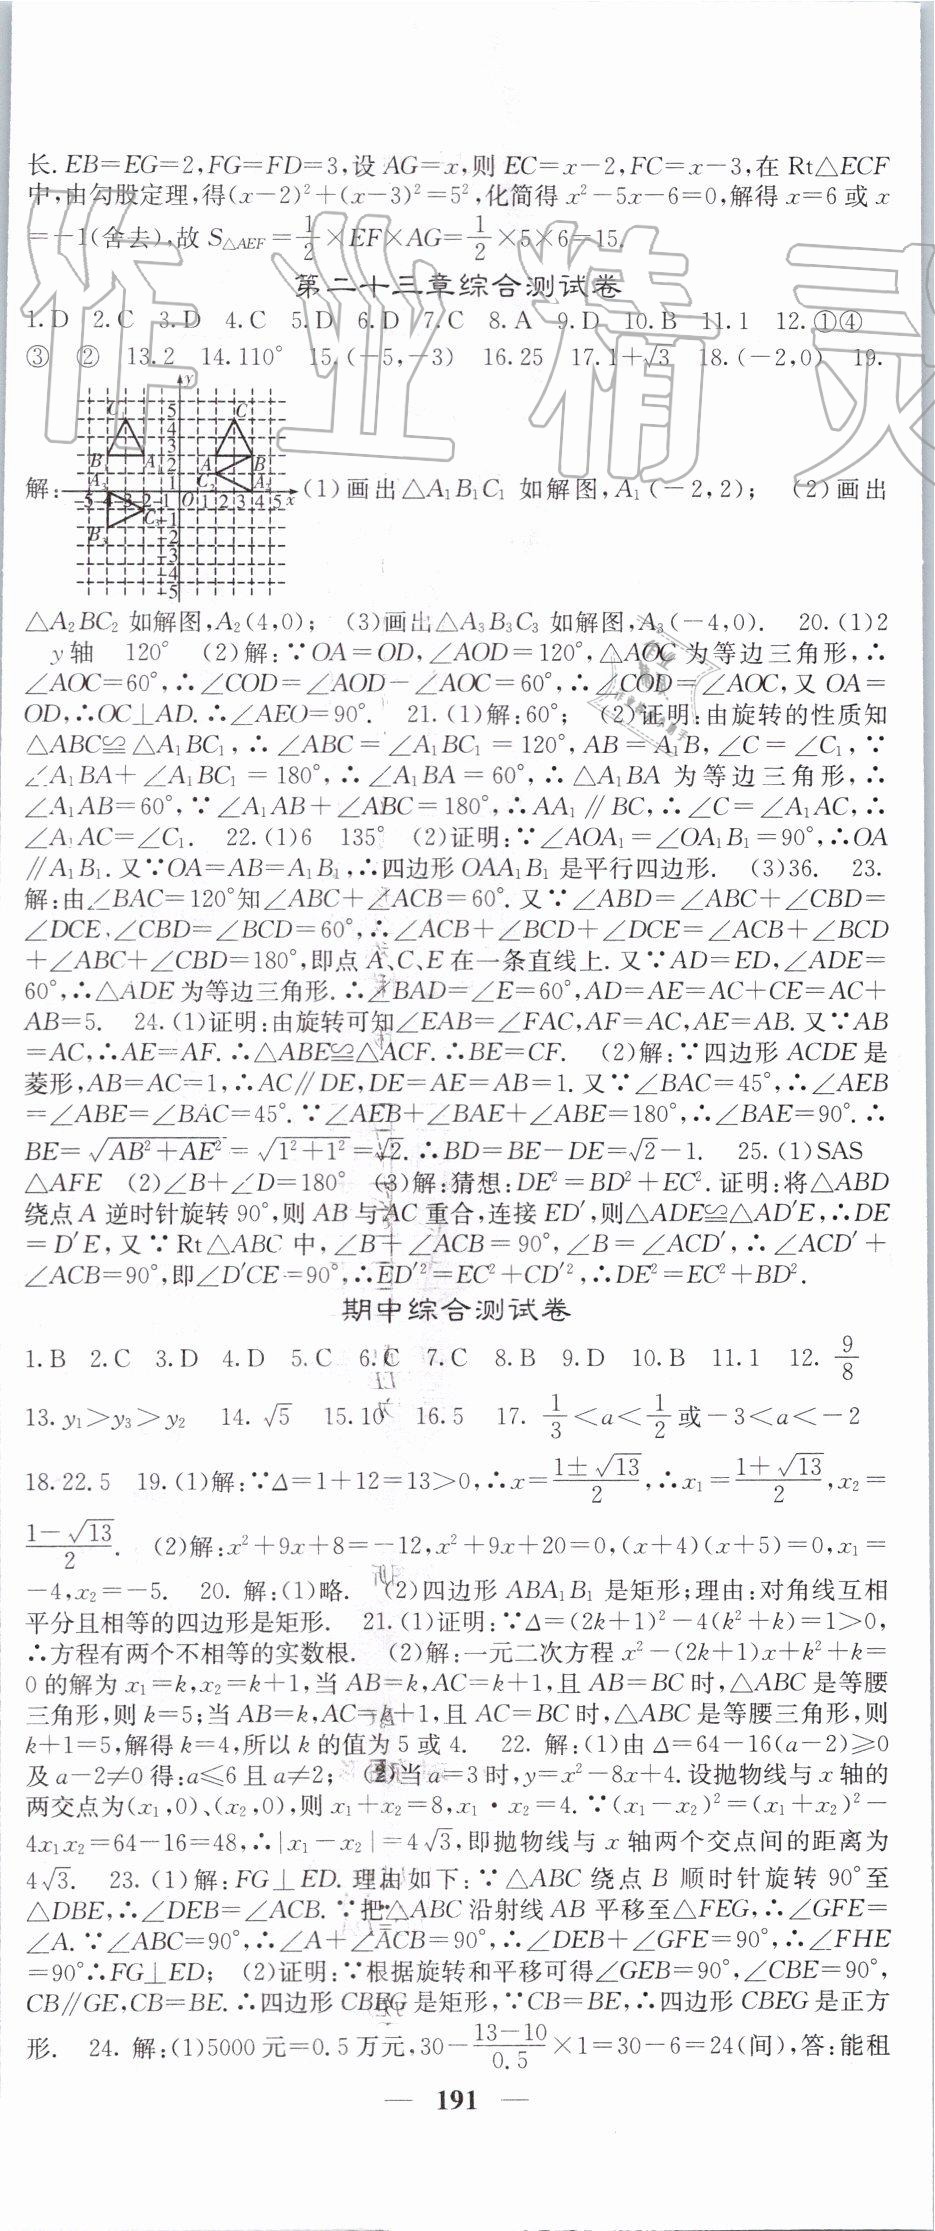 长. EB=EG=2,FG=FD=3,设 AG=x,则 EC=x-2,FC=x-3,在 Rt△ECF
中,由勾股定理,得(x-2)²+(x-3)²=5²,化简得 x²-5x-6=0,解得 x=6 或 x
=-1(舍去),故 S△AEF=1/2×EF×AG=1/2×5×6=15.
第二十三章综合测试卷
1.D 2.C 3.D 4.C 5.D 6.D 7.C 8.A 9.D 10.B 11.1 12.①④
③ ② 13.2 14.110° 15.(-5,-3) 16.25 17.1+√3 18.(-2,0) 19.
解: (1)画出△A₁B₁C₁ 如解图,A₁(-2,2); (2)画出
△A₂BC₂ 如解图,A₂(4,0); (3)画出△A₃B₃C₃ 如解图,A₃(-4,0). 20.(1)2
y轴 120° (2)解:∵OA=OD,∠AOD=120°,△AOC 为等边三角形,∴
∠AOC=60°,∴∠COD=∠AOD-∠AOC=60°,∴∠COD=∠AOC,又 OA=
OD,∴OC⊥AD.∴∠AEO=90°. 21.(1)解:60°; (2)证明:由旋转的性质知
△ABC≌△A₁BC₁,∴∠ABC=∠A₁BC₁=120°,AB=A₁B,∠C=∠C₁,∵
∠A₁BA+∠A₁BC₁=180°,∴∠A₁BA=60°,∴△A₁BA 为等边三角形,∴
∠A₁AB=60°,∵∠A₁AB+∠ABC=180°,∴AA₁∥BC,∴∠C=∠A₁AC,∴
∠A₁AC=∠C₁. 22.(1)6 135° (2)证明:∵∠AOA₁=∠OA₁B₁=90°,∴OA
∥A₁B₁.又∵OA=AB=A₁B₁,∴四边形 OAA₁B₁ 是平行四边形. (3)36. 23.
解:由∠BAC=120°知∠ABC+∠ACB=60°.又∵∠ABD=∠ABC+∠CBD=
∠DCE,∠CBD=∠BCD=60°,∴∠ACB+∠BCD+∠DCE=∠ACB+∠BCD
+∠ABC+∠CBD=180°,即点 A、C、E 在一条直线上.又∵AD=ED,∠ADE=
60°,∴△ADE 为等边三角形.∴∠BAD=∠E=60°,AD=AE=AC+CE=AC+
AB=5. 24.(1)证明:由旋转可知∠EAB=∠FAC,AF=AC,AE=AB.又∵AB
=AC,∴AE=AF.∴△ABE≌△ACF.∴BE=CF. (2)解:∵四边形 ACDE 是
菱形,AB=AC=1,∴AC∥DE,DE=AE=AB=1.又∵∠BAC=45°,∴∠AEB
=∠ABE=∠BAC=45°.∵∠AEB+∠BAE+∠ABE=180°,∴∠BAE=90°.∴
BE=√(AB²+AE²)=√(1²+1²)=√2.∴BD=BE-DE=√2-1. 25.(1)SAS
△AFE (2)∠B+∠D=180° (3)解:猜想:DE²=BD²+EC².证明:将△ABD
绕点 A 逆时针旋转 90°,则 AB 与 AC 重合,连接 ED′,则△ADE≌△AD′E,∴DE
=D′E,又∵Rt△ABC 中,∠B+∠ACB=90°,∠B=∠ACD′,∴∠ACD′+
∠ACB=90°,即∠D′CE=90°,∴ED′²=EC²+CD′²,∴DE²=EC²+BD².
期中综合测试卷
1.B 2.C 3.D 4.D 5.C 6.C 7.C 8.B 9.D 10.B 11.1 12. 9/8
13.y₁>y₃>y₂ 14.√5 15.10 16.5 17. 1/3<a<1/2或-3<a<-2
18.22.5 19.(1)解:∵Δ=1+12=13>0,∴x=(1±√13)/2,∴x₁=(1+√13)/2,x₂=
(1-√13)/2. (2)解:x²+9x+8=-12,x²+9x+20=0,(x+4)(x+5)=0,x₁=
-4,x₂=-5. 20. 解:(1)略. (2)四边形 ABA₁B₁ 是矩形;理由:对角线互相
平分且相等的四边形是矩形. 21.(1)证明:∵Δ=(2k+1)²-4(k²+k)=1>0,
∴方程有两个不相等的实数根. (2)解:一元二次方程 x²-(2k+1)x+k²+k=
0 的解为 x₁=k,x₂=k+1,当 AB=k,AC=k+1,且 AB=BC 时,△ABC 是等腰
三角形,则 k=5;当 AB=k,AC=k+1,且 AC=BC 时,△ABC 是等腰三角形,则
k+1=5,解得 k=4,所以 k 的值为 5 或 4. 22. 解:(1)由 Δ=64-16(a-2)≥0
及 a-2≠0 得:a≤6 且 a≠2; (2)当 a=3 时,y=x²-8x+4.设抛物线与 x 轴的
两交点为(x₁,0)、(x₂,0),则 x₁+x₂=8,x₁·x₂=4.∵(x₁-x₂)²=(x₁+x₂)²-
4x₁x₂=64-16=48,∴|x₁-x₂|=4√3,即抛物线与 x 轴两个交点间的距离为
4√3. 23.(1)解:FG⊥ED.理由如下:∵△ABC 绕点 B 顺时针旋转 90°至
△DBE,∴∠DEB=∠ACB.∵把△ABC 沿射线 AB 平移至△FEG,∴∠GFE=
∠A.∵∠ABC=90°,∴∠A+∠ACB=90°,∴∠DEB+∠GFE=90°,∴∠FHE
=90°∴FG⊥ED; (2)证明:∵根据旋转和平移可得∠GEB=90°,∠CBE=90°,
CB∥GE,CB=BE.∴四边形 CBEG 是矩形,∵CB=BE,∴四边形 CBEG 是正方
形. 24. 解:(1)5000 元=0.5 万元,30-(13-10)/0.5×1=30-6=24(间),答:能租
— 191 —
作业精灵